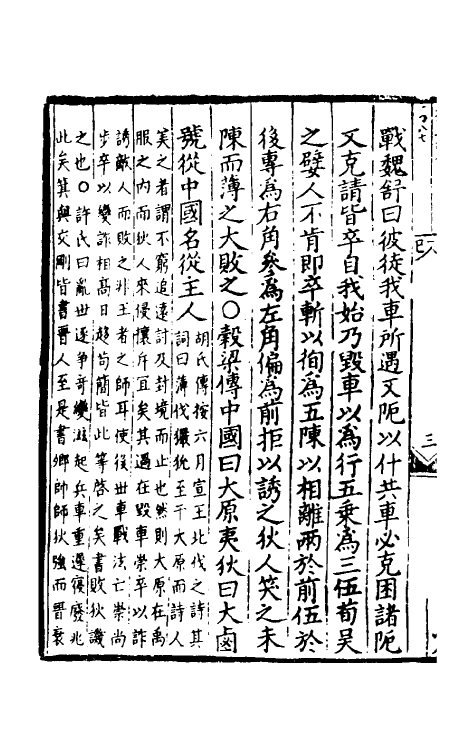 戰魏舒曰彼徒我車所遇又阨以什共車必克困諸阨
又克請皆卒自我始乃毀車以為行五乘為三伍荀吳
之嬖人不肯即卒斬以徇為五陳以相離兩於前伍於
後專為右角參為左角偏為前拒以誘之狄人笑之未
陳而薄之大敗之○穀梁傳中國曰大原夷狄曰大鹵
號從中國名從主人
胡氏傳按六月宣王北伐之詩其
詞曰薄伐玁狁至于大原而詩人
美之者謂不窮追遠討及封境而止也然則大原在禹
服之内而狄人來侵攘斥宜矣其過在毀車崇卒以詐
誘敵人而敗之非王者之師耳使後世車戰法亡崇尚
步卒以變詐相高日趍苟簡皆此等啓之矣書敗狄譏
之也○許氏曰亂世逐爭竒變滋起兵車重遲寖廢兆
此矣箕與交剛皆書晋人至是書卿帥師狄強而晋衰
三